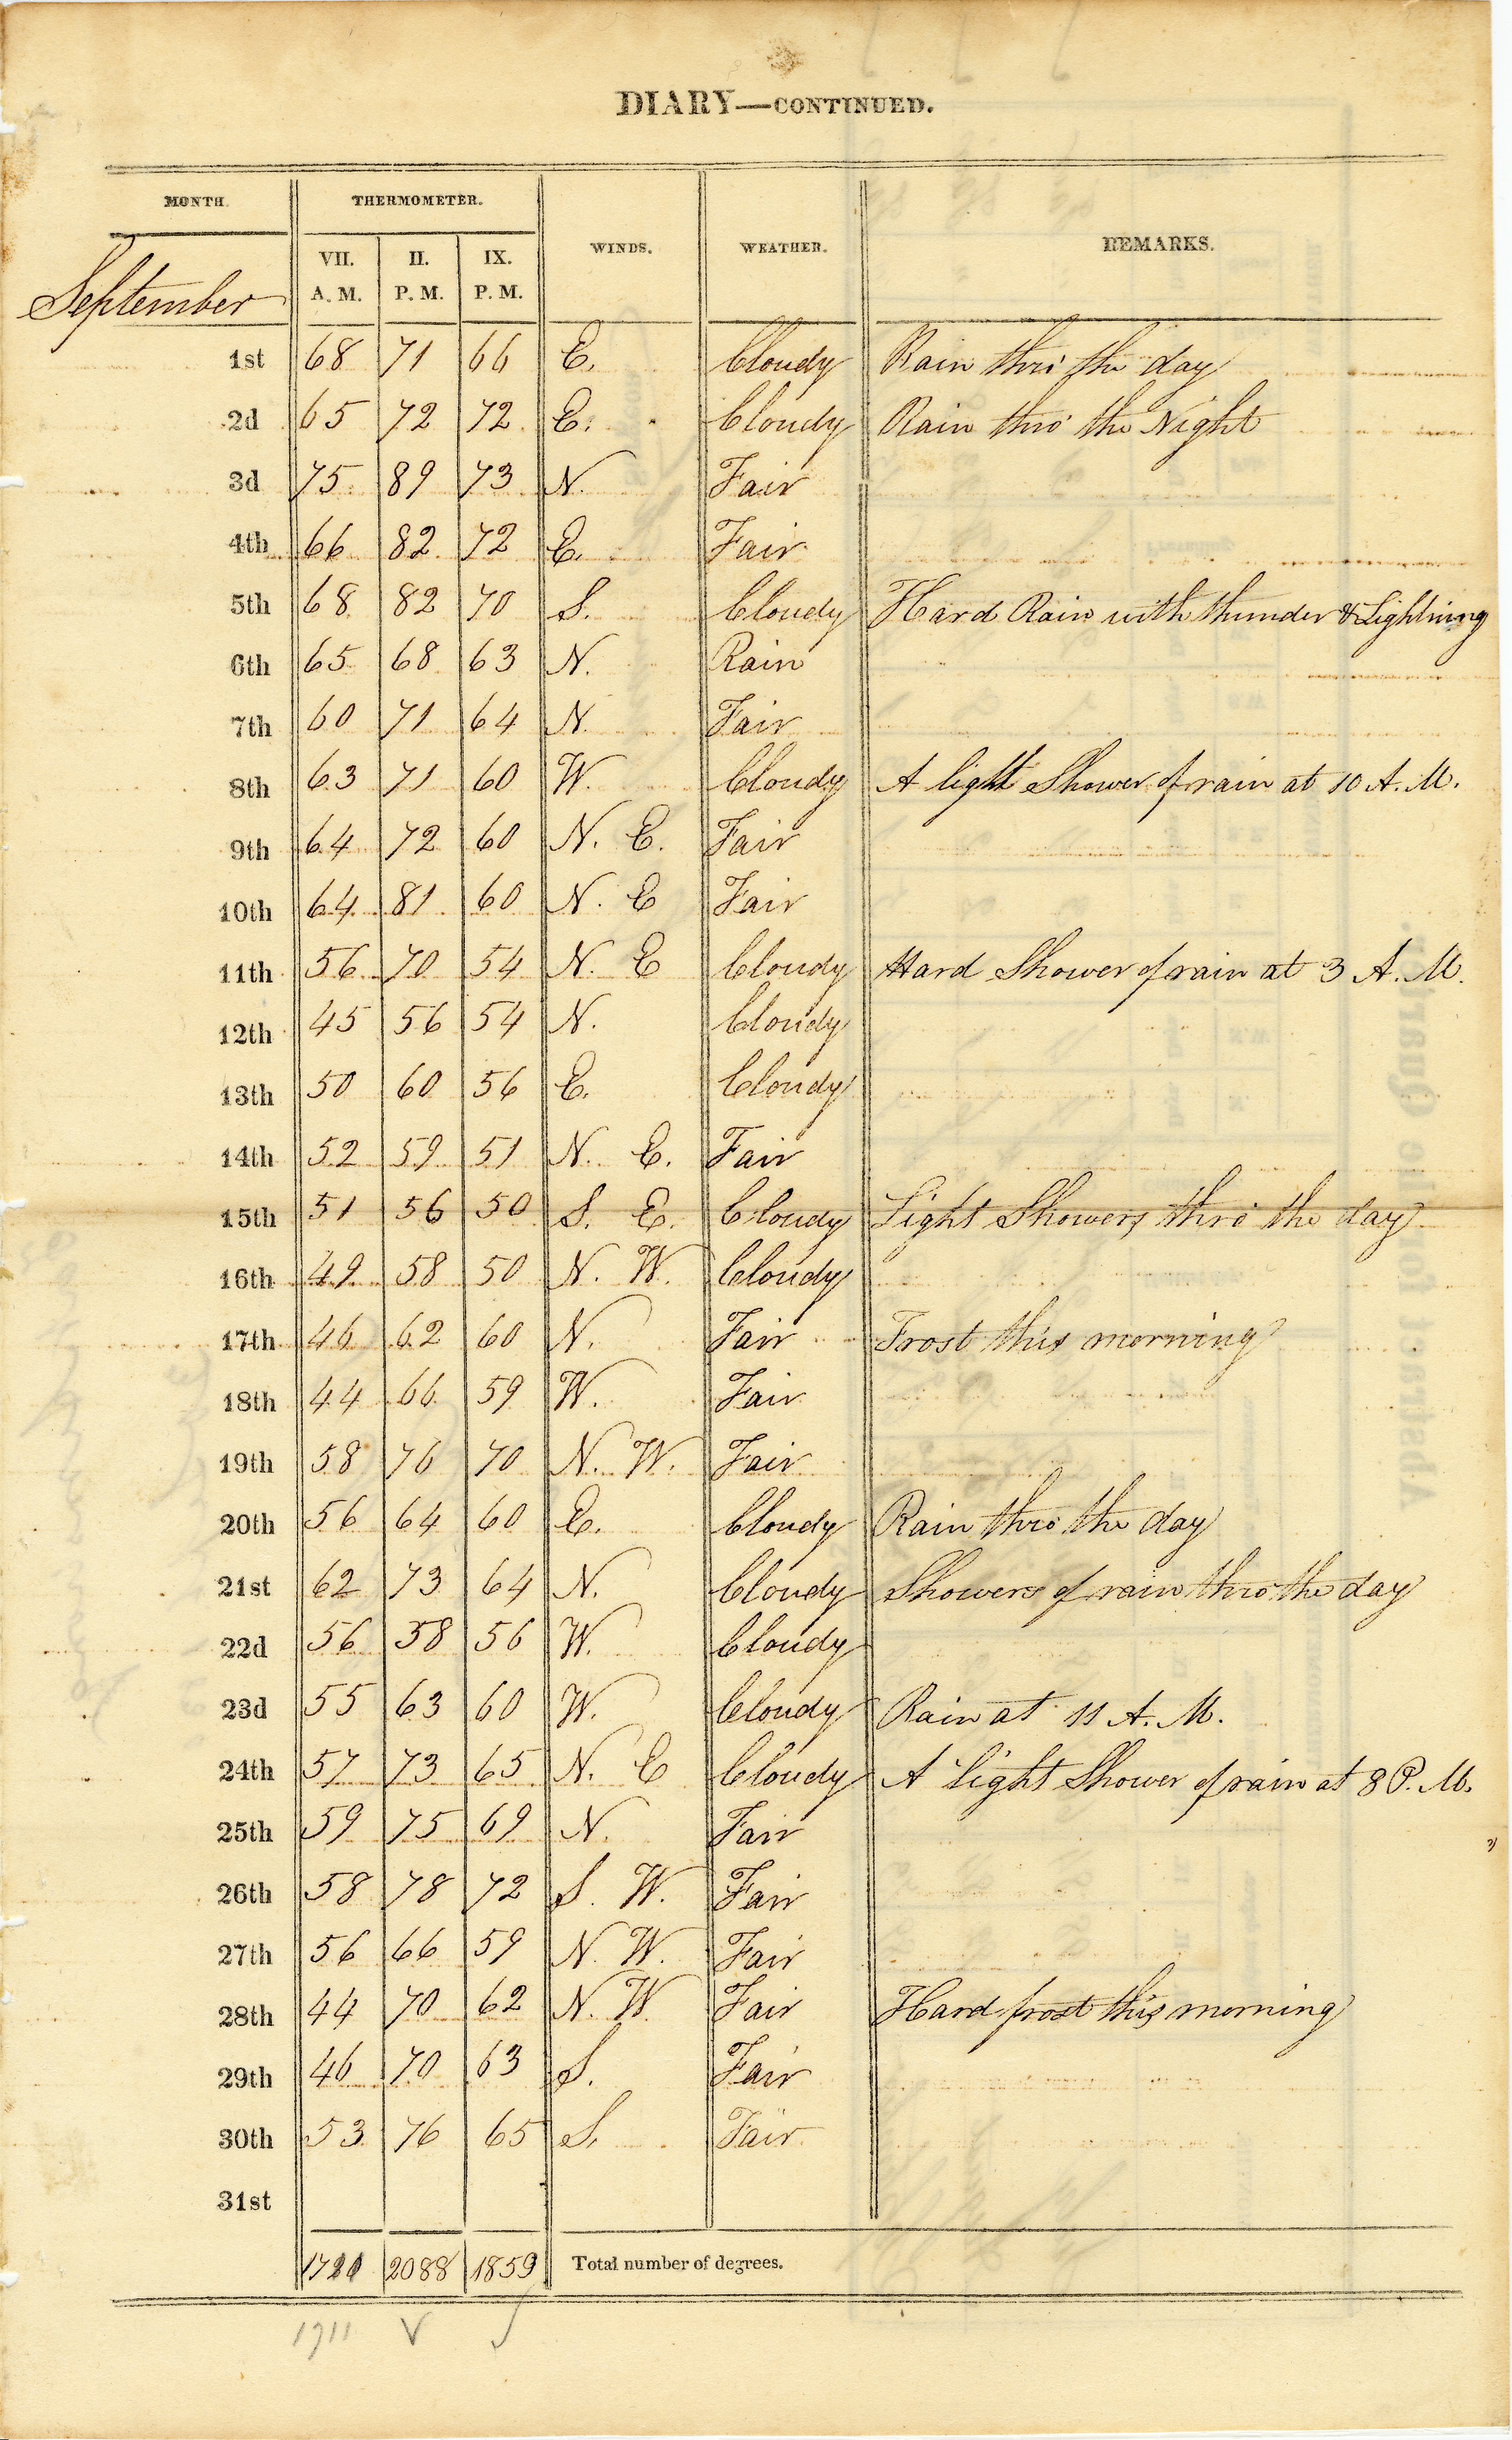 DIARY—CONTINUED.
MONTH. THERMOMETER. WINDS. WEATHER. REMARKS.
September VII. A.M. II. P.M. IX. P.M.
1st 68 71 66 E. Cloudy Rain thro' the day
2d 65 72 72 E. Cloudy Rain thro' the Night
3d 75 89 73 N. Fair
4th 66 82 72 E. Fair
5th 68 82 70 S. Cloudy Hard Rain with thunder & Lightning
6th 65 68 63 N. Rain
7th 60 71 64 N. Fair
8th 63 71 60 W. Cloudy A light Shower of rain at 10 A.M.
9th 64 72 60 N. E. Fair
10th 64 81 60 N. E Fair
11th 56 70 54 N. E Cloudy Hard Shower of rain at 3 A.M.
12th 45 56 54 N. Cloudy
13th 50 60 56 E. Cloudy
14th 52 59 51 N. E. Fair
15th 51 56 50 S. E. Cloudy Light Showers thro' the day
16th 49 58 50 N. W. Cloudy
17th 46 62 60 N. Fair Frost this morning
18th 44 66 59 W. Fair
19th 58 76 70 N. W. Fair
20th 56 64 60 E. Cloudy Rain thro' the day
21st 62 73 64 N. Cloudy Showers of rain thro' the day
22d 56 58 56 W. Cloudy
23d 55 63 60 W. Cloudy Rain at 11 A.M.
24th 57 73 65 N. E Cloudy A light Shower of rain at 8 P.M.
25th 59 75 69 N. Fair
26th 58 78 72 S. W. Fair
27th 56 66 59 N. W. Fair
28th 44 70 62 N. W Fair Hard frost this morning
29th 46 70 63 S. Fair
30th 53 76 65 S. Fair
31st
2088 1859 Total number of degrees.
1711